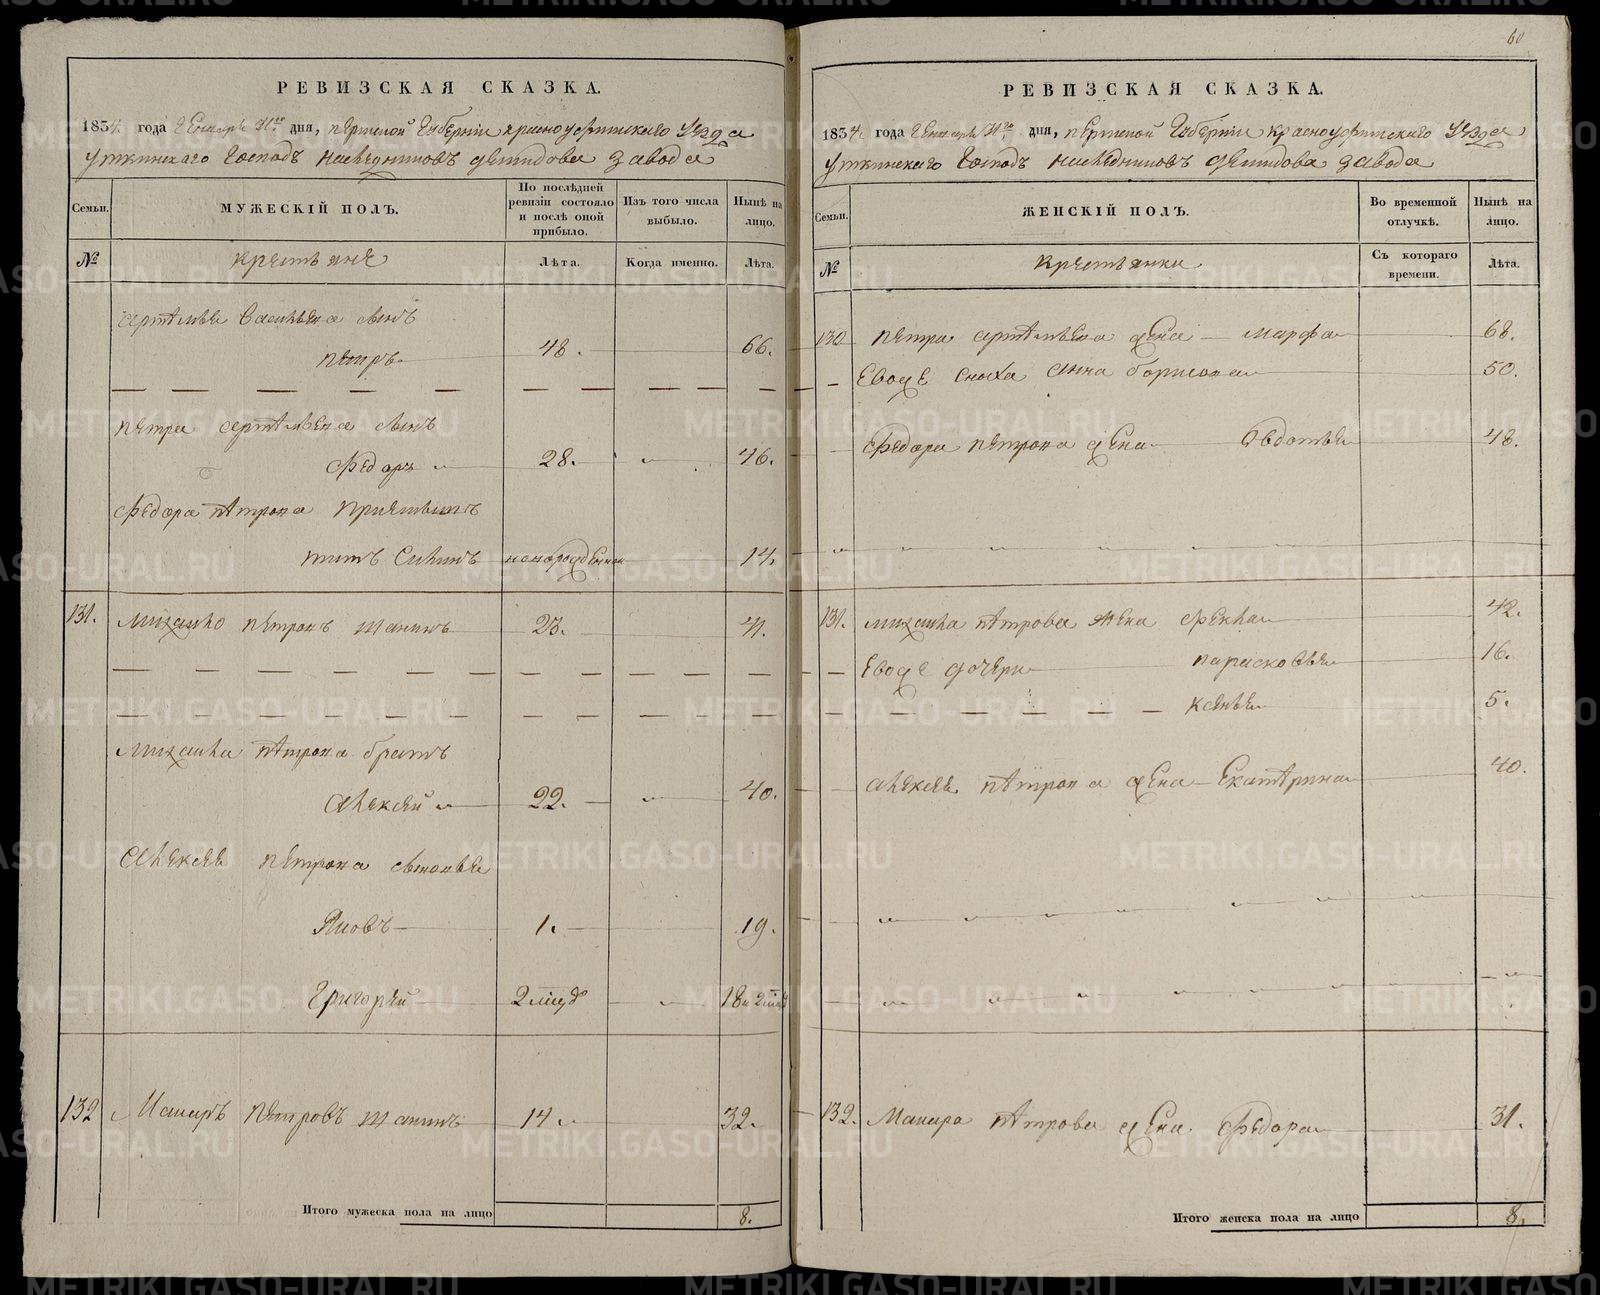 РЕВИЗСКАЯ СКАЗКА.
1834 года Генваря дня, Пермской Губернiи Красноуфимскаго Уезда
Уткинскаго Господъ наследниковъ Демидова завода
Семьи.
МУЖЕСКIЙ ПОЛЪ.
По послѣдней ревизiи состояло и послѣ оной прибыло.
Изъ того числа выбыло.
Нынѣ на лицо.
№
Крестьяне
Лѣта.
Когда именно.
Лѣта.
Артѣмья Васильева сынъ
Пѣтръ 48. 66.
Пѣтра Артѣмьева сынъ
Федоръ 28. 46.
Федора Пѣтрова приемышъ
Титъ новорожденной 14.
131. Михайло Пѣтровъ Шанинъ 23. 41.
Михайла Пѣтрова братъ
Алексѣй 22. 40.
Алексѣя Пѣтрова сыновья
Яковъ 1. 19.
Григорѣй 18
132 Макаръ Пѣтровъ Шанинъ 14 32.
Итого мужеска пола на лицо 8.
60
РЕВИЗСКАЯ СКАЗКА.
1834 года Генваря дня, Пермской Губернiи Красноуфимскаго Уезда
Уткинскаго Господъ наследниковъ Демидова завода
Семьи.
ЖЕНСКIЙ ПОЛЪ.
Во временной отлучкѣ.
Нынѣ на лицо.
№
Крестьянки
Съ котораго времени.
Лѣта.
130 Пѣтра Артѣмьева жена Марфа 68.
Евоже сноха Анна Борисова 50.
Федора Пѣтрова жена Овдотья 48.
131. Михайла Пѣтрова жена Фекла 42.
Евоже дочери Парасковья 16.
Ксенья 5.
Алексѣя Пѣтрова жена Екатѣрина 40.
132. Макара Пѣтрова жена Федора 31.
Итого женска пола на лицо 8.
METRIKI.GASO-URAL.RU